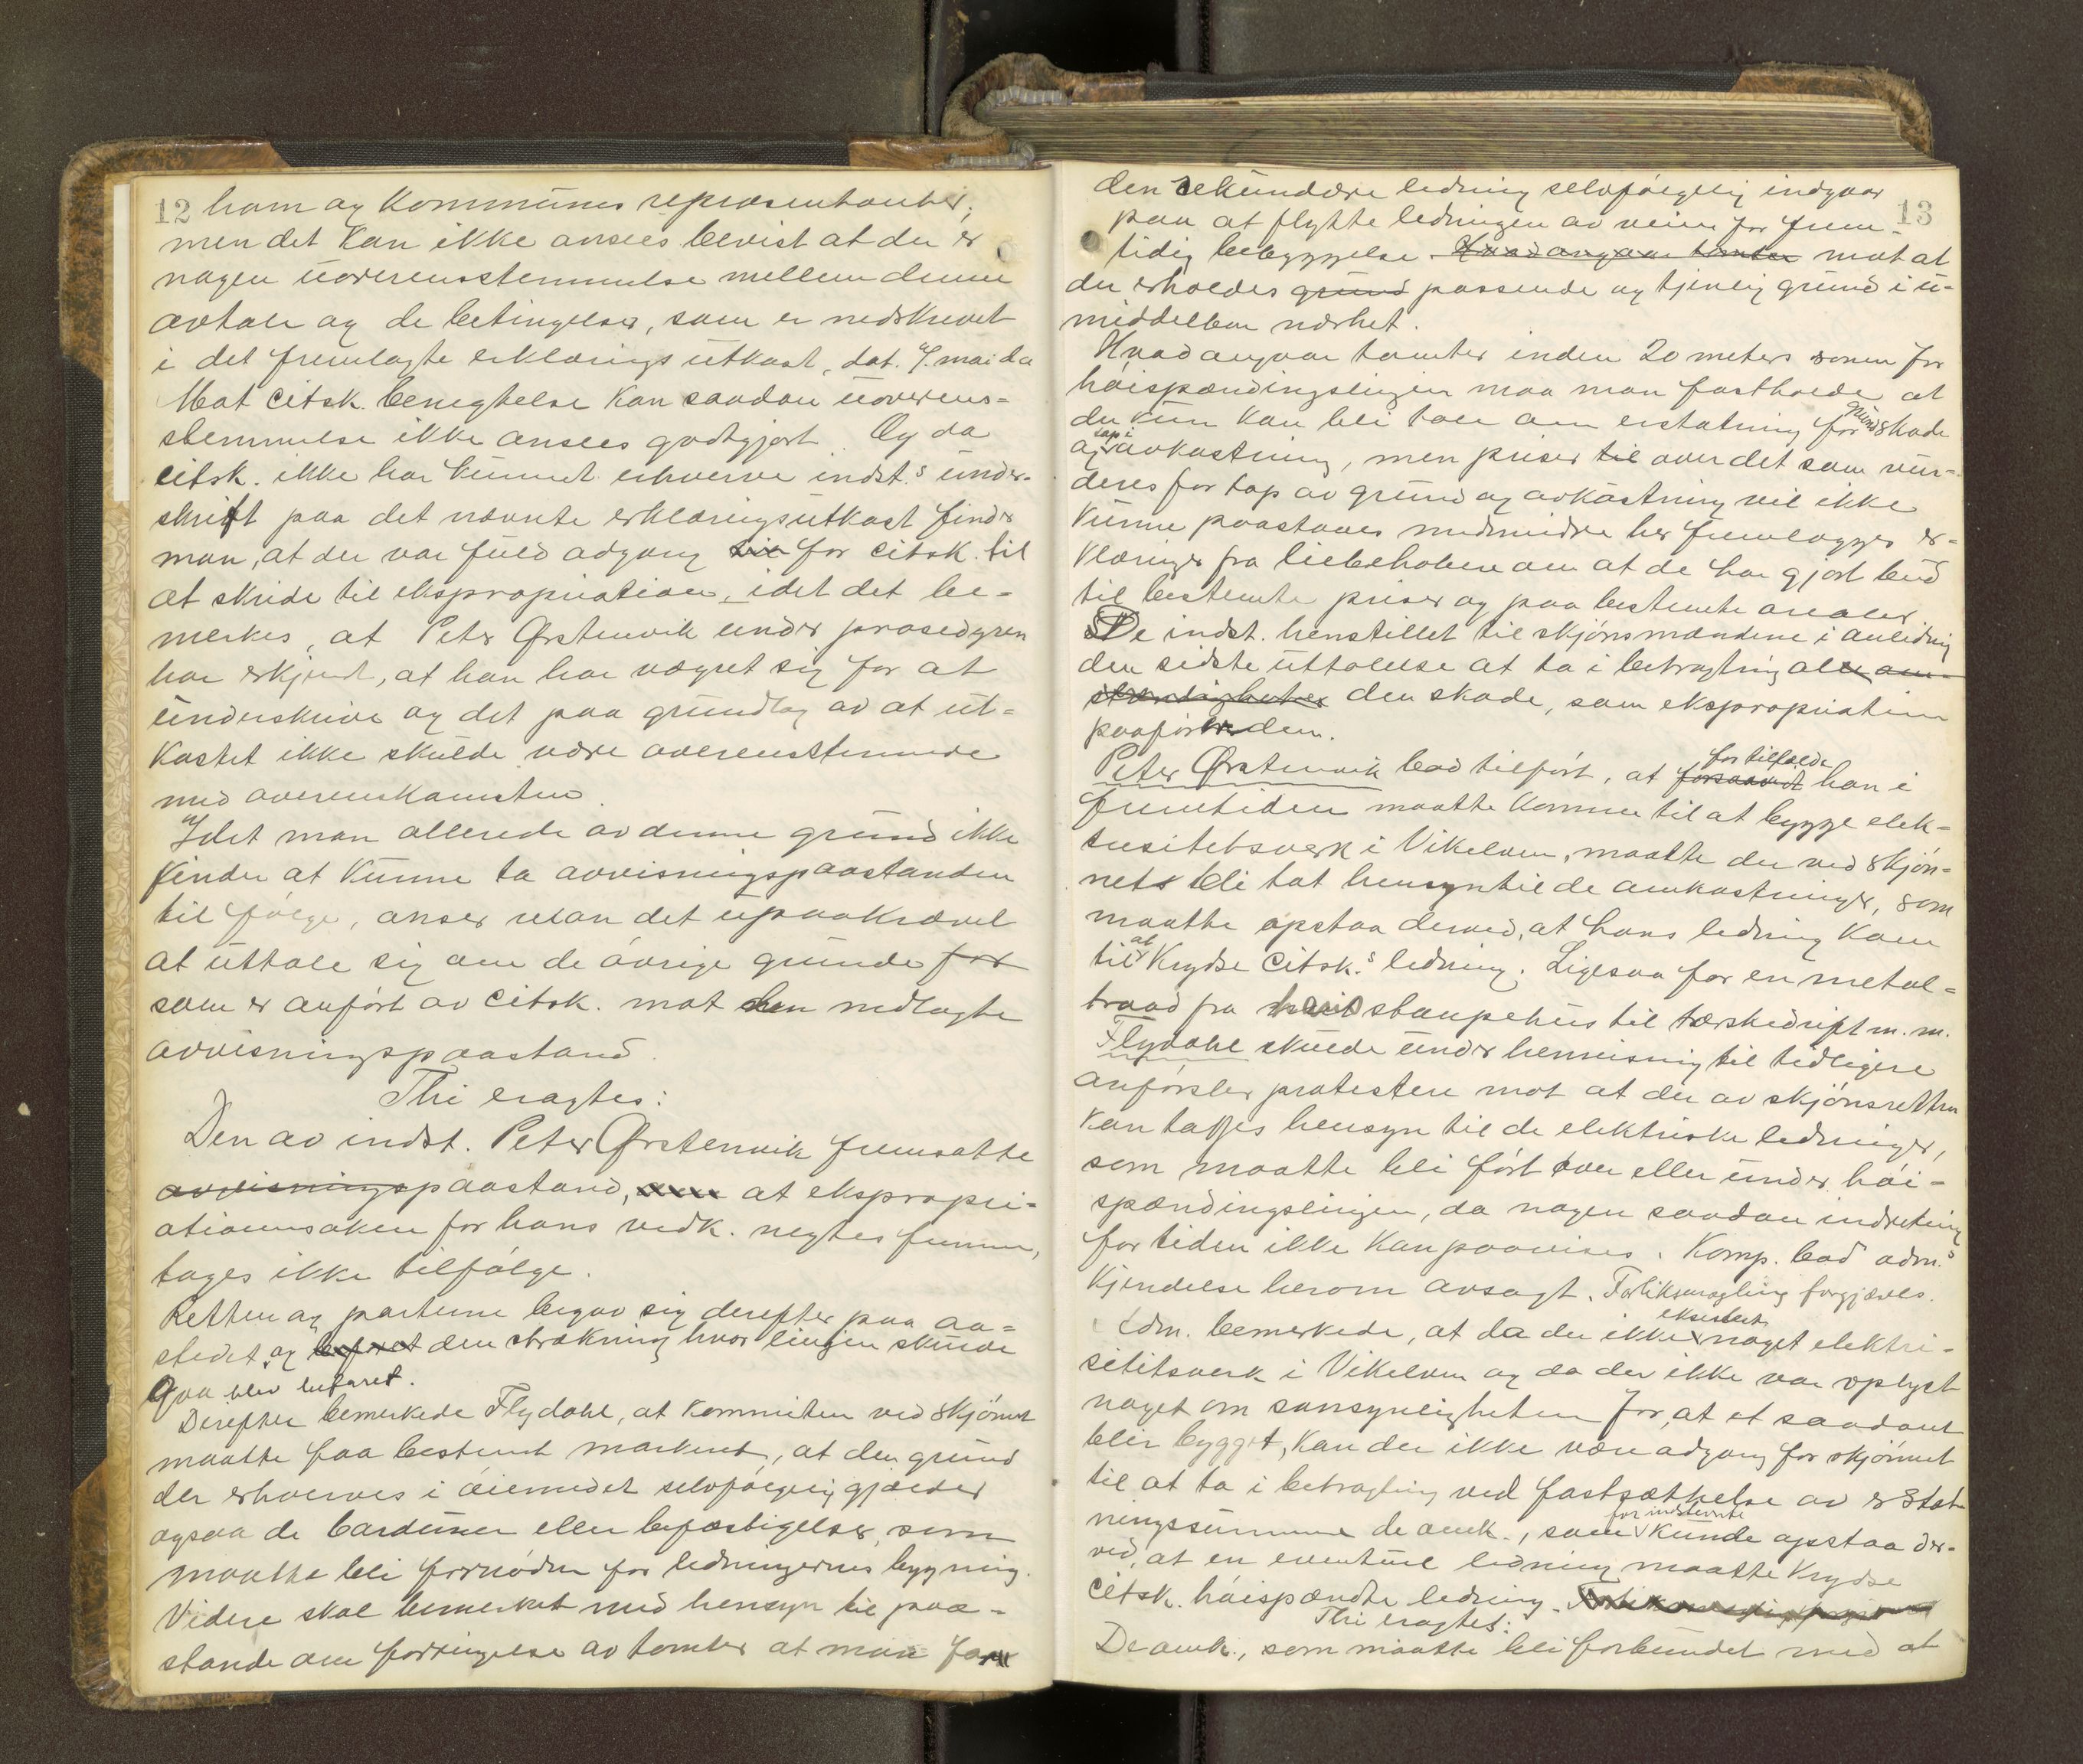 12
ham og Kommunens repræsentanter;
men det kan ikke ansees bevist at der er
nogen uoverensstemmelse mellem denne
avtale og de betingelser, som er nedskrevet
i det fremlagte erklærings utkast, dat. mai da
Mot citsk. benegtelse kan saadan uoverens-
stemmelse ikke ansees godtgjort. Og da
citsk. ikke har kunnet erhverve indst.s under-
skrift paa det nævnte erklæringsutkast finder
man, at der var fuld adgang til for citsk. til
at skride til ekspropriation, idet det be-
merkes, at Peter Ørstenvik under prosedyren
har erkjendt, at han har vægret sig for at
underskrive og det paa grundlag av at ut-
kastet ikke skulde være overensstemmende
med overenskomsten.
Idet man allerede av denne grund ikke
finder at kunne ta avvisningspaastanden
til følge, anser man det upaakrævet
at uttale sig om de øvrige grunde for
som er anført av citsk. mot den nedlagte
avvisningspaastand.
Thi eragtes:
Den av indst. Peter Ørstenvik fremsatte
avvisningspaastand, om at ekspropri-
ationssaken for hans vedk. negtes fremme,
tages ikke tilfølge.
Retten og parterne begav sig derefter paa aa-
stedet og befaret den strækning hvor linjen skulde
gaa blev befaret.
Derefter bemerkede Flydahl, at kommunen ved skjønnet
maatte faa bestemt markert, at den grund
der erhverves i øiemedet selvfølgelig gjælder
ogsaa de barduner eller befæstigelser, som
maatte bli fornødne for ledningernes bygning.
Videre skal bemerket med hensyn til paa-
stande om forringelse av tomter at man for
13
den sekundære ledning selvfølgelig indgaar
paa at flytte ledningen av veien for frem-
tidig bebyggelse. Hvad angaar tomter mot at
der erholdes grund passende og tjenlig grund i u-
middelbar nærhet.
Hvad angaar tomter inden 20 meters sonen for
høispændingslinjen maa man fastholde at
der kun kan bli tale om erstatning for grund skade
og tap i avkastning, men priser til over det som vur-
deres for tap av grund og avkastning vil ikke
kunne paastaaes medmindre her fremlægges er-
klæringer fra liebehabere om at de har gjort bud
til bestemte priser og paa bestemte arealer
De indst. henstillet til skjønsmændene i anledning
den sidste uttalelse at ta i betragtning alle om-
stændigheter den skade, som ekspropriation
paaførte dem.
Peter Ørstenvik bad tilført, at forsaavidt for tilfælde han i
fremtiden maatte komme til at bygge elek-
trisitetsverk i Vikelven, maatte der ved skjøn-
net bli tat hensyn til de omkostninger, som
maatte opstaa derved, at hans ledning kom
til at krydse citsk.s ledning. Ligesaa for en metal-
traad fra hans stampehus til tærskedrift m.m.
Flydahl skulde under henvisning til tidligere
anførsler protestere mot at der av skjønsretten
kan tages hensyn til de elektriske ledninger,
som maatte bli ført over eller under høi-
spændingslinjen, da nogen saadan indretning
for tiden ikke kan paavises. Komp. bad adm.s
kjendelse herom avsagt. Forliksmægling forgjæves.
Adm. bemerkede, at da der ikke eksisterte noget elektri-
sitetsverk i Vikelven og da der ikke var oplyst
noget om sansynligheten for, at et saadant
blir bygget, kan der ikke være adgang for skjønnet
til at ta i betragtning ved fastsættelse av erstat-
ningssummene de omk., som for indstevnte kunde opstaa der-
ved, at en eventuel ledning maatte krydse
citsk. høispændte ledning. Forliksmægling forgjæves
Thi eragtes:
De omk., som maatte bli forbundet med at